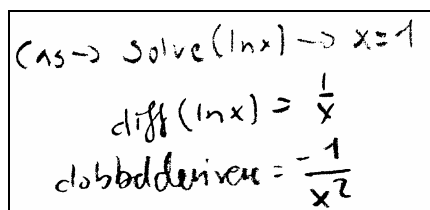 Cas → solve(lnx) → x=1
diff(lnx) = 1/x
dobbelderiver = -1/x²